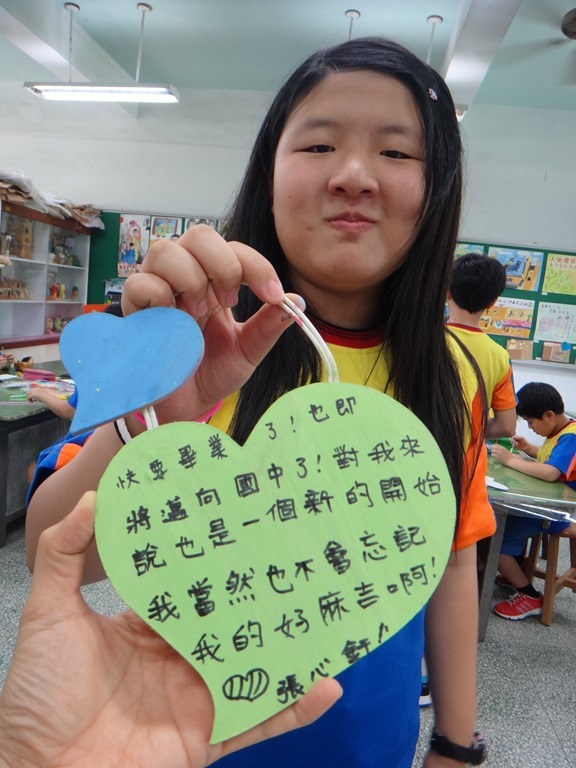 快要畢業了!也即
將邁向國中了!對我來
說也是一個新的開始
我當然也不會忘記
我的好麻吉啊!
張心